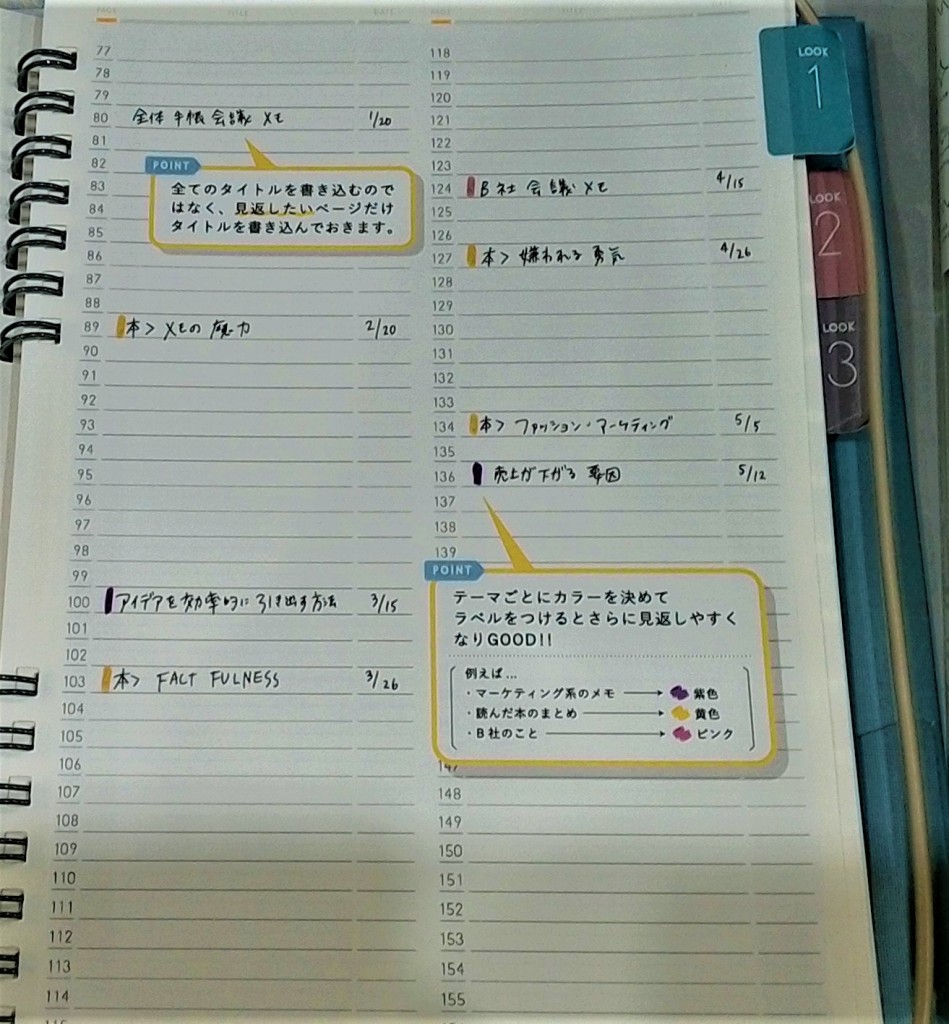 PAGE TITLE
77
78
79
80 全体手帳会議メモ 1/20
81
82
POINT
全てのタイトルを書き込むので
はなく、見返したいページだけ
タイトルを書き込んでおきます。
83
84
85
86
87
88
89 本> メモの魔力 2/20
90
91
92
93
94
95
96
97
98
99
100 アイデアを効率的に引き出す方法 3/15
101
102
103 本> FACT FULNESS 3/26
104
105
106
107
108
109
110
111
112
113
114
118
119
120
121
122
123
124 B社会議メモ 4/15
125
126
127 本> 嫌われる勇気 4/26
128
129
130
131
132
133
134 本> ファッション・マーケティング 5/5
135
136 売上が下がる要因 5/12
137
138
139
POINT
テーマごとにカラーを決めて
ラベルをつけるとさらに見返しやすく
なりGOOD!!
例えば…
・マーケティング系のメモ → 紫色
・読んだ本のまとめ → 黄色
・B社のこと → ピンク
147
148
149
150
151
152
153
154
155
LOOK
1
LOOK
2
LOOK
3